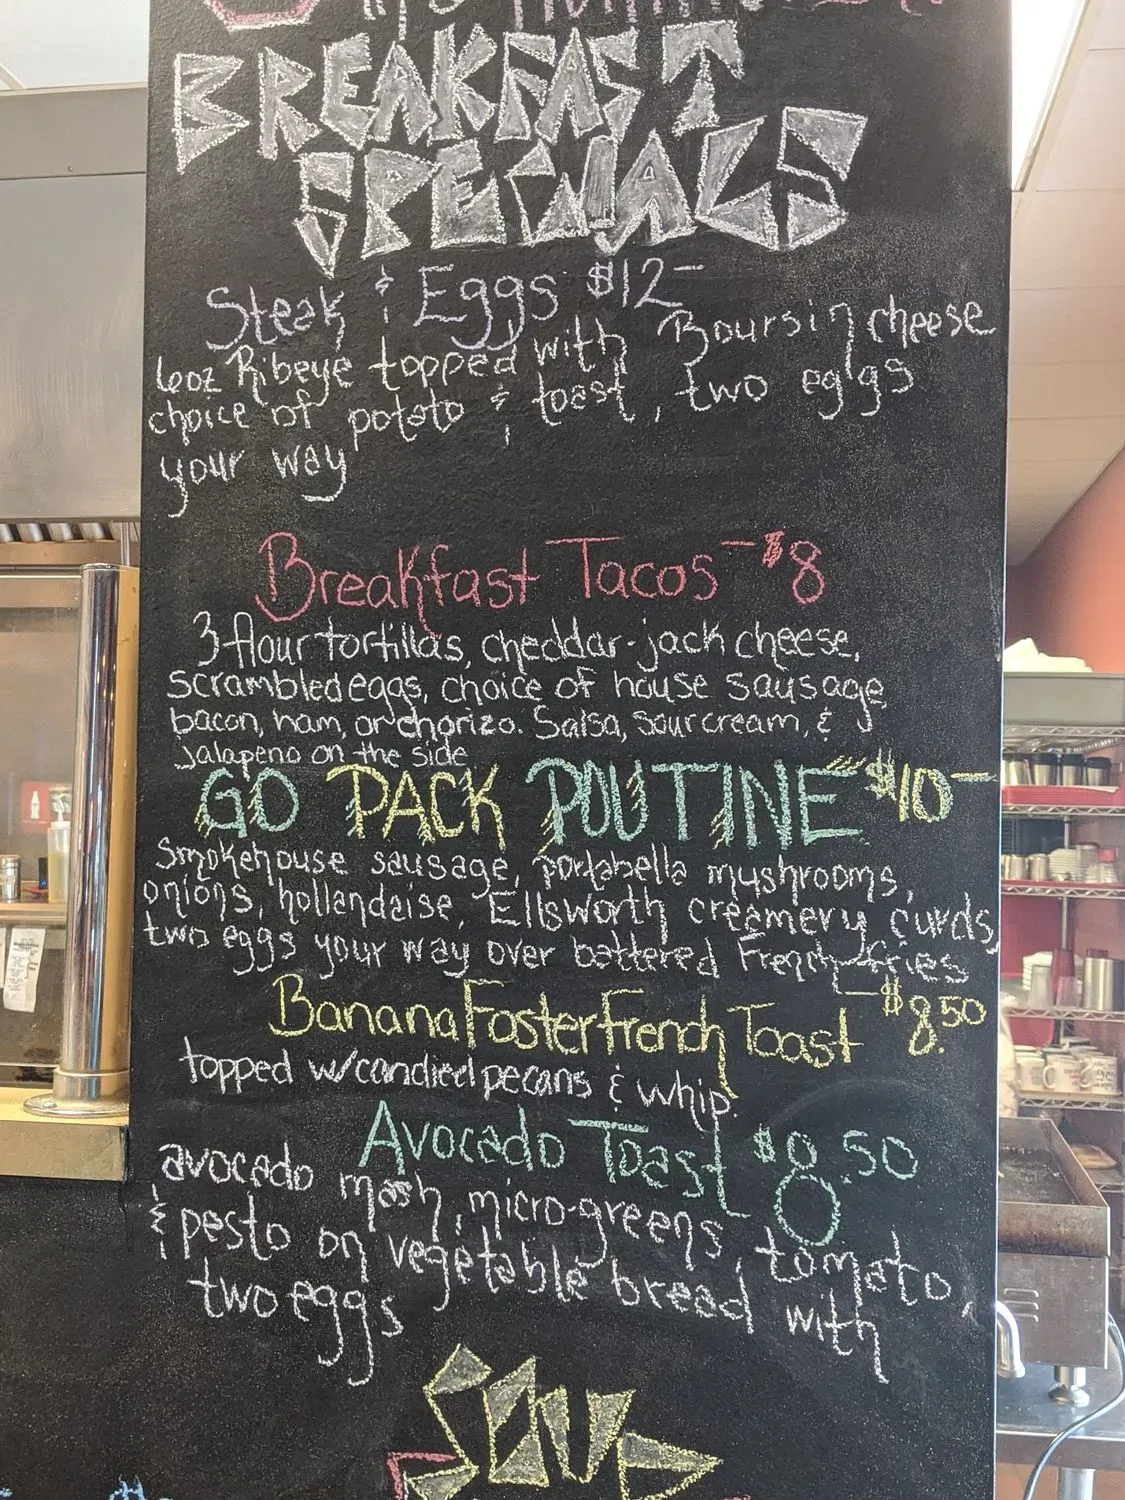 BREAKFAST
SPECIALS
Steak & Eggs $12-
6oz Ribeye topped with Boursin cheese
choice of potato & toast, two eggs
your way
Breakfast Tacos - $8
3 flour tortillas, cheddar-jack cheese,
scrambled eggs, choice of house sausage,
bacon, ham, or chorizo. Salsa, sour cream, &
jalapeno on the side
GO PACK POUTINE $10-
Smokehouse sausage, portabella mushrooms,
onions, hollandaise, Ellsworth creamery curds,
two eggs your way over battered French fries
Banana Foster French Toast - $8.50
topped w/candied pecans & whip.
Avocado Toast $8.50
avocado mash, micro-greens, tomato,
& pesto on vegetable bread with
two eggs
SOUP